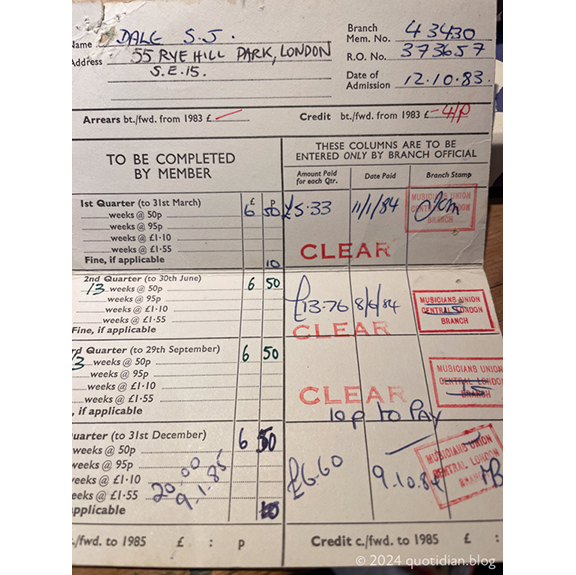 Name DALE S.J. Branch Mem. No. 43430
Address 55 RYE HILL PARK, LONDON R.O. No. 373657
S.E.15. Date of Admission 12.10.83.
Arrears bt./fwd. from 1983 £ Credit bt./fwd. from 1983 £
TO BE COMPLETED BY MEMBER
THESE COLUMNS ARE TO BE ENTERED ONLY BY BRANCH OFFICIAL
Amount Paid for each Qtr. Date Paid Branch Stamp
1st Quarter (to 31st March) £ p
weeks @ 50p 6 50 £5.33 11/1/84 MUSICIANS UNION
weeks @ 95p CENTRAL LONDON
weeks @ £1·10 BRANCH
weeks @ £1·55 CLEAR
Fine, if applicable 10
2nd Quarter (to 30th June) 6 50
13 weeks @ 50p £13-76 8/6/84 MUSICIANS UNION
weeks @ 95p CENTRAL LONDON
weeks @ £1·10 BRANCH
weeks @ £1·55 CLEAR
Fine, if applicable
rd Quarter (to 29th September) 6 50
3 weeks @ 50p MUSICIANS UNION
weeks @ 95p CENTRAL LONDON
weeks @ £1·10 CLEAR BRANCH
weeks @ £1·55
, if applicable 10p to PAY
uarter (to 31st December) 6 50
weeks @ 50p MUSICIANS UNION
weeks @ 95p £6-60 9.10.84 CENTRAL LONDON
eeks @ £1·10 20.00 BRANCH
eeks @ £1·55 9.1.85
pplicable 10
c./fwd. to 1985 £ : p Credit c./fwd. to 1985 £ :
© 2024 quotidian.blog